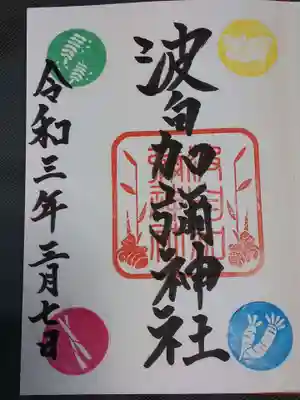 波自加彌神社
令和三年三月七日